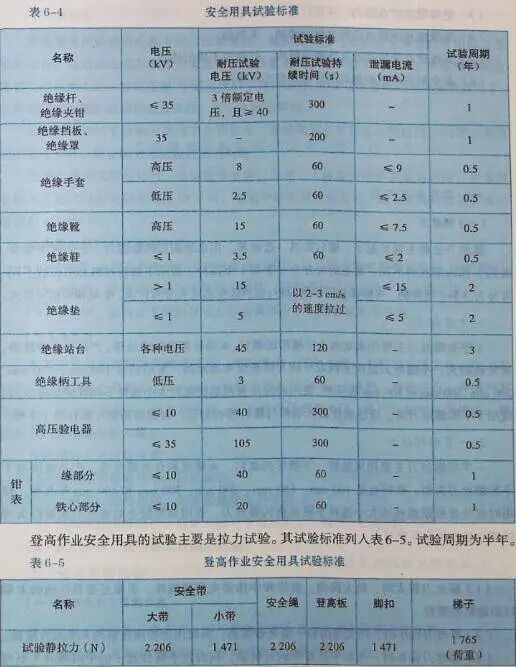 表 6-4 安全用具试验标准
名称 电压(kV) 试验标准 试验周期(年)
耐压试验电压(kV) 耐压试验持续时间(s) 泄漏电流(mA)
绝缘杆、绝缘夹钳 ≤35 3倍额定电压,且≥40 300 - 1
绝缘挡板、绝缘罩 35 - 200 - 1
绝缘手套 高压 8 60 ≤9 0.5
低压 2.5 60 ≤2.5 0.5
绝缘靴 高压 15 60 ≤7.5 0.5
绝缘鞋 ≤1 3.5 60 ≤2 0.5
绝缘垫 >1 15 以2-3 cm/s的速度拉过 ≤15 2
≤1 5 ≤5 2
绝缘站台 各种电压 45 120 - 3
绝缘柄工具 低压 3 60 - 0.5
高压验电器 ≤10 40 300 - 0.5
≤35 105 300 - 0.5
钳表 缘部分 ≤10 40 60 - 1
铁心部分 ≤10 20 60 - 1
登高作业安全用具的试验主要是拉力试验。其试验标准列入表6-5。试验周期为半年。
表 6-5 登高作业安全用具试验标准
名称 安全带 安全绳 登高板 脚扣 梯子
大带 小带
试验静拉力(N) 2 206 1 471 2 206 2 206 1 471 1 765(荷重)